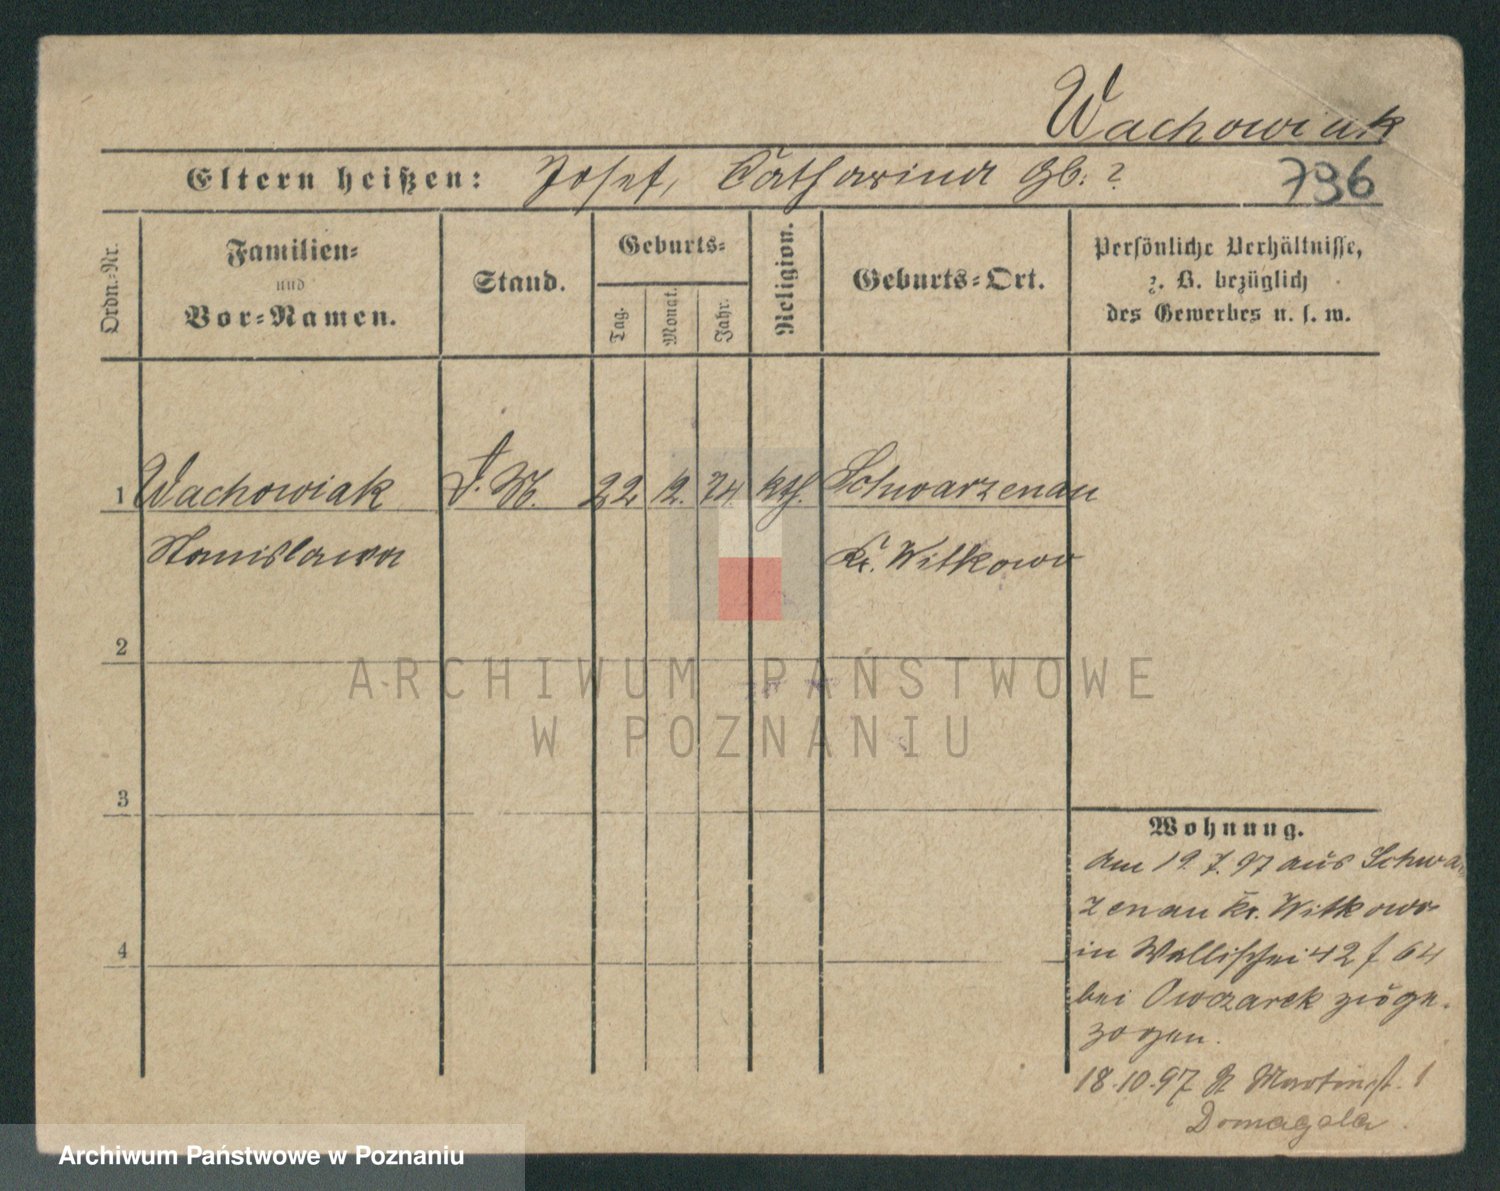 Wachowiak
Eltern heißen: Josef, Catharina Gb. ?
796
Ordn.-Nr.
Familien-
und
Vor-Namen.
Stand.
Geburts-
Tag.
Monat.
Jahr.
Religion.
Geburts-Ort.
Persönliche Verhältnisse,
z. B. bezüglich
des Gewerbes u. s. w.
1 Wachowiak D. M. 22 12. 74 kth. Schwarzenau
Stanislawa Kr. Witkowo
2
3
4
Wohnung.
am 19. 7. 97 aus Schwar
zenau Kr. Witkowo
in Wallischei 42 f 64
bei Owczarek zuge-
zogen.
18.10.97 St Martinst. 1
Domagala
ARCHIWUM PAŃSTWOWE
W POZNANIU
Archiwum Państwowe w Poznaniu